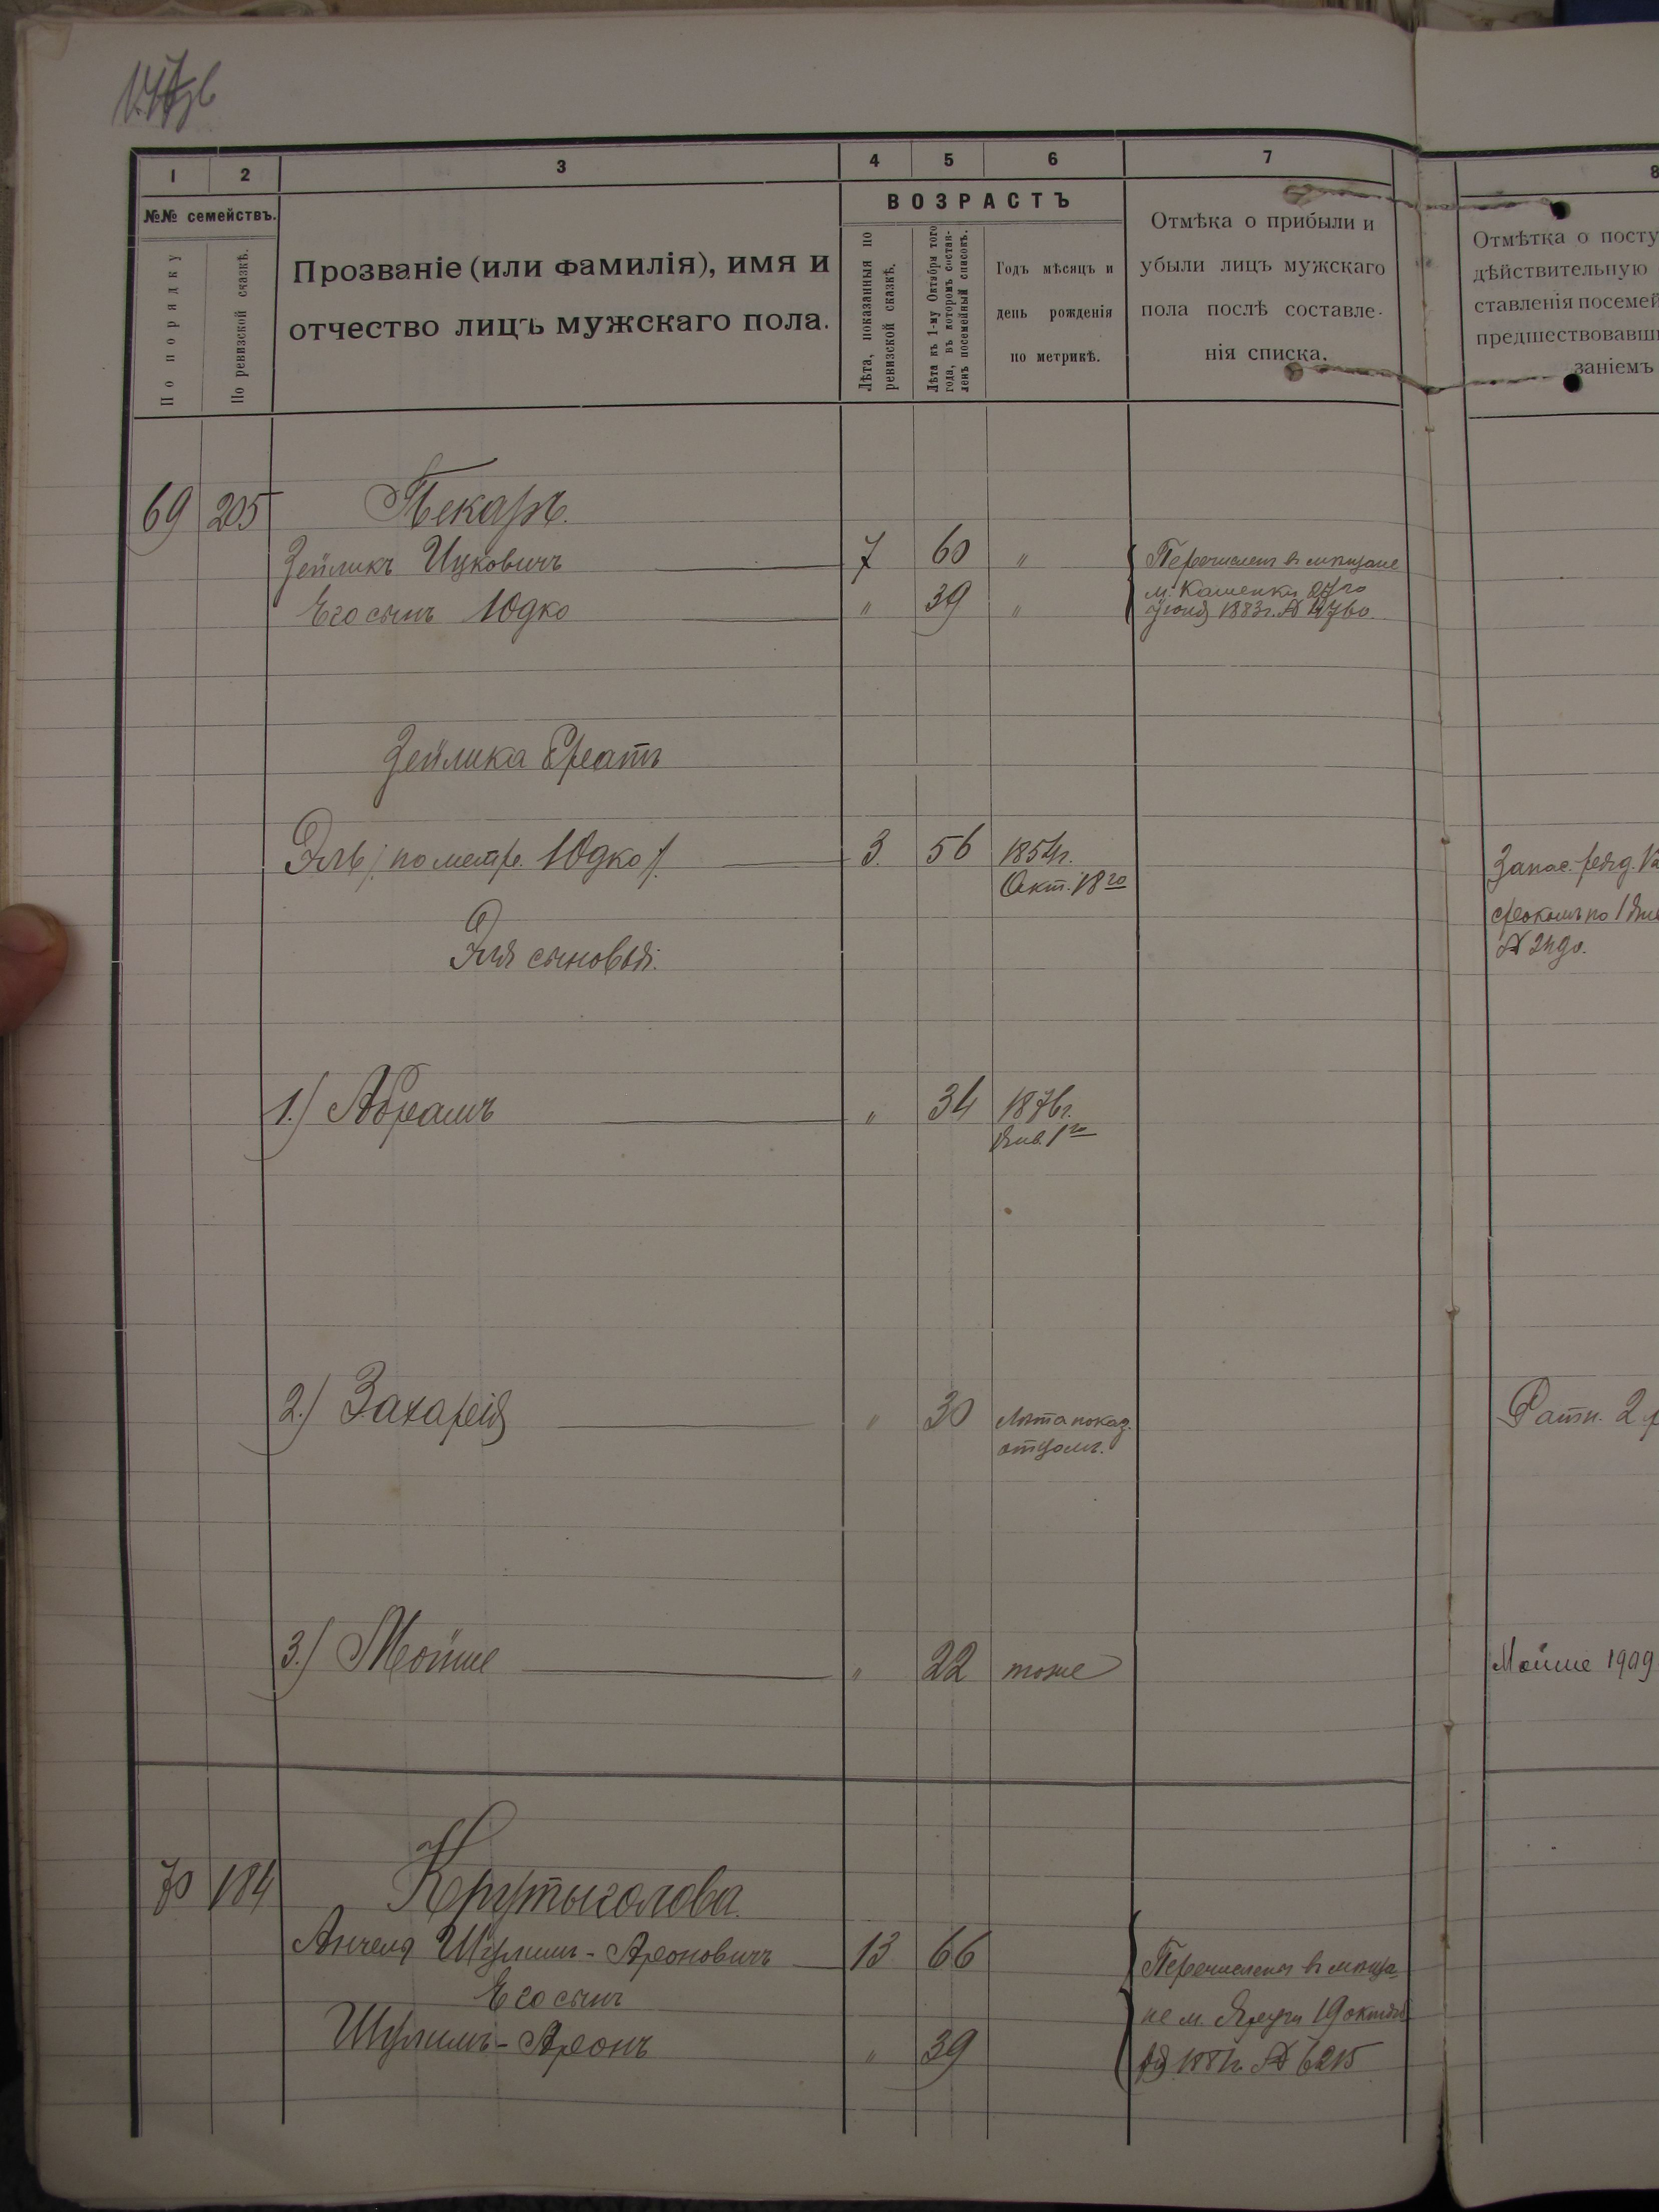 147об
1 2 3 4 5 6 7 8
№№ семействъ.
По порядку
По ревизской сказкѣ.
Прозваніе (или фамилія), имя и
отчество лицъ мужскаго пола.
ВОЗРАСТЪ
Лѣта, показанныя по
ревизской сказкѣ.
Лѣта къ 1-му Октября того
года, въ которомъ состав-
ленъ посемейный списокъ.
Годъ мѣсяцъ и
день рожденія
по метрикѣ.
Отмѣка о прибыли и
убыли лицъ мужскаго
пола послѣ составле-
нія списка.
Отмѣтка о посту
дѣйствительную
ставленія посемей
предшествовавш
заніемъ
69 205 Пекаръ.
Зейликъ Ицковичъ 7 60 " Перечислен в мѣщане
Его сынъ Юдко " 39 " м. Каменки 27го
Іюня 1883г. № 4760
Зейлика братъ
Эль /: по метр. Юдко :/ 3. 56 1854г.
Окт. 18го
Запас. ряд.
срокомъ по 1
№ 2490.
Эля сыновья:
1.) Абрамъ " 34 1876г.
Янв. 1го
2.) Захарія " 30 Лѣта показ.
отцомъ.
Ратн. 2
3.) Мойше " 22 тоже
Мойше 1909
70 184 Крутыголова.
Анчель Шулимъ-Ароновичъ 13 66 Перечислены в мѣща-
Его сынъ
не м. Яруги 19 октяб
Шулимъ-Аронъ " 39
ря 1881г. № 6215